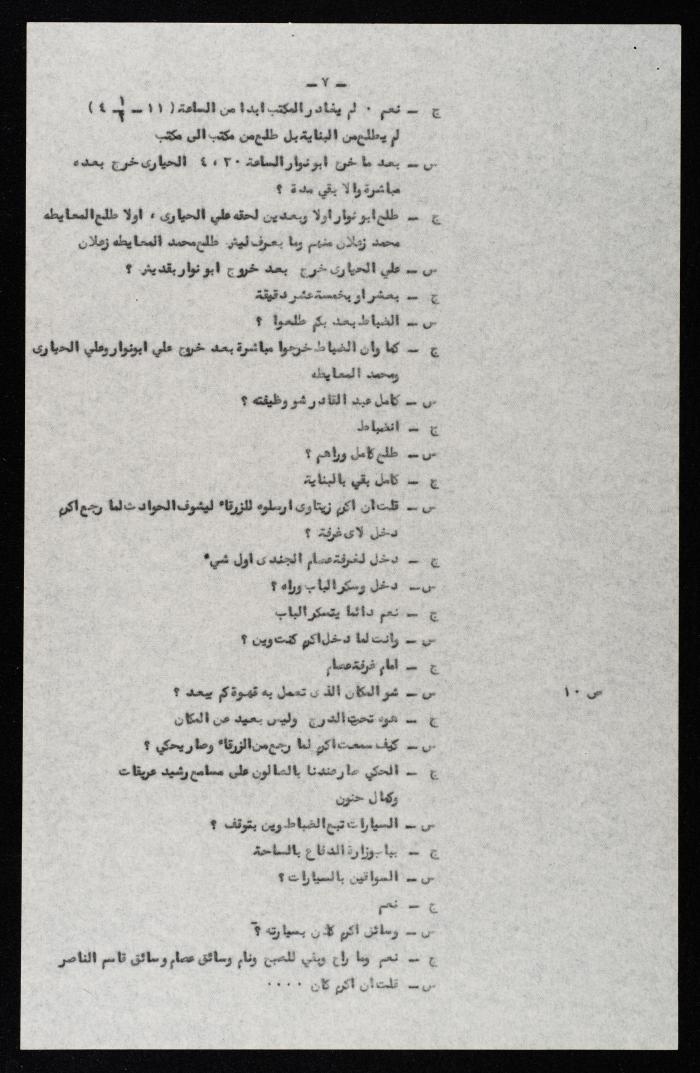 ـ ٧ ـ
ج ـ نعم ٠ لم يغادر المكتب ابدا من الساعة ( ١١ ـ ½ ٤ )
لم يطلع من البناية بل طلع من مكتب الى مكتب
س ـ بعد ما خرج ابو نوار الساعة ٢٠ر٤ الحيارى خرج بعده
مباشرة والا بقي مدة ؟
ج ـ طلع ابو نوار اولا وبعدين لحقه علي الحيارى ، اولا طلع المعايطه
محمد زعلان منهم وما بعرف ليش طلع محمد المعايطه زعلان
س ـ علي الحيارى خرج بعد خروج ابو نوار بقديش ؟
ج ـ بعشر او بخمسة عشر دقيقة
س ـ الضباط بعد بكم طلعوا ؟
ج ـ كما وان الضباط خرجوا مباشرة بعد خروج علي ابونوار وعلي الحيارى
ومحمد المعايطه
س ـ كامل عبد القادر شو وظيفته ؟
ج ـ انضباط
س ـ طلع كامل وراهم ؟
ج ـ كامل بقي بالبناية
س ـ قلت ان اكرم زيتاوى ارسلوه للزرقاء ليشوف الحوادث لما رجع اكرم
دخل لاى غرفة ؟
ج ـ دخل لغرفة عصام الجندى اول شيء
س ـ دخل وسكر الباب وراه ؟
ج ـ نعم دائما يتسكر الباب
س ـ وانت لما دخل اكرم كنت وين ؟
ج ـ امام غرفة عصام
س ـ شو المكان الذى تعمل به قهوة كم يبعد ؟ ص ١٠
ج ـ هوه تحت الدرج وليس بعيد عن المكان
س ـ كيف سمعت اكرم لما رجع من الزرقاء وصار يحكي ؟
ج ـ الحكي صار عندنا بالصالون على مسامع رشيد عريقات
وكمال حنون
س ـ السيارات تبع الضباط وين بتوقف ؟
ج ـ بباب وزارة الدفاع بالساحة
س ـ السواقين بالسيارات ؟
ج ـ نعم
س ـ وسائق اكرم كان بسيارته ؟
ج ـ نعم وما راح وبقي للصبح ونام وسائق عصام وسائق قاسم الناصر
س ـ قلت ان اكرم كان ٠٠٠٠